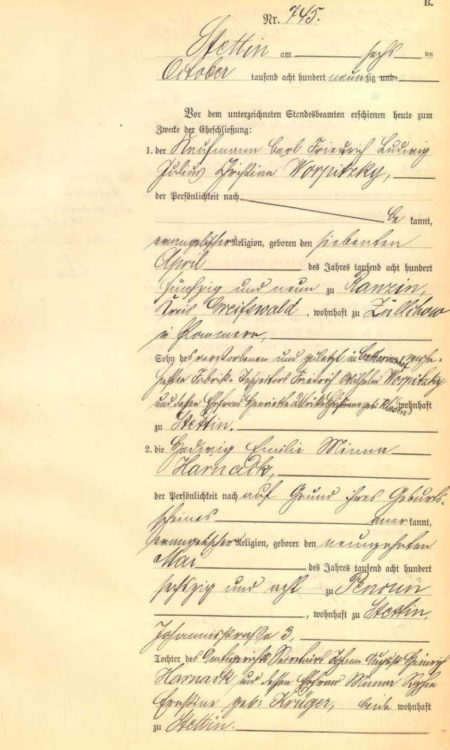 B.
Nr. 745.
Stettin am sechs ten
October tausend acht hundert neunzig und
Vor dem unterzeichneten Standesbeamten erschienen heute zum
Zwecke der Eheschließung:
1. der Kaufmann Carl Friedrich Ludwig
Julius Christian Worpitzky,
der Persönlichkeit nach
be kannt,
evangelischer Religion, geboren den siebenten
April des Jahres tausend acht hundert
fünfzig und neun zu Ranzin,
Kreis Greifswald, wohnhaft zu Züllchow
in Pommern,
Sohn des verstorbenen und zuletzt in
Fabrik-Inspektors Friedrich Wilhelm Worpitzky
und dessen Ehefrau Henriette geb. wohnhaft
zu Stettin.
2. die Hedwig Emilie Minna
Harnack,
der Persönlichkeit nach auf Grund ihres Geburts-
scheines aner kannt,
evangelischer Religion, geboren den neunzehnten
Mai des Jahres tausend acht hundert
sechszig und acht zu Penkun
, wohnhaft zu Stettin,
Johannisstraße 3,
Tochter des Amtsgerichts Secretairs Johann August Heinrich
Harnack und dessen Ehefrau Minna Sophie
Ernstine geb. Krüger, beide wohnhaft
zu Stettin.